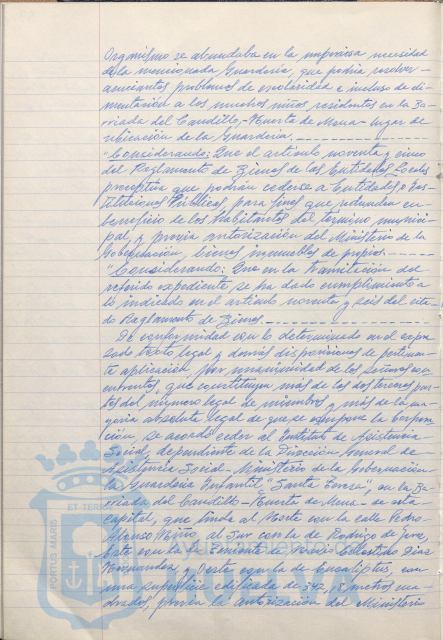 Organismo se abundaba en la imperiosa necesidad
de la mencionada Guardería, que podría resolver
acuciantes problemas de escolaridad e incluso de
mentación a los muchos niños residentes en la Ba-
rriada del Caudillo,-Huerta de Mena- lugar de
ubicación de la Guardería.
"Considerando: Que el artículo noventa y cinco
del Reglamento de Bienes de las Entidades Locales
preceptúa que podrán cederse a Entidades o Ins-
tituciones Públicas para fines que redunden en
beneficio de los habitantes del término munici-
pal, y previa autorización del Ministerio de la
Gobernación, bienes inmuebles de propios.
"Considerando: Que en la tramitación del
referido expediente, se ha dado cumplimiento a
lo indicado en el artículo noventa y seis del cita-
do Reglamento de Bienes.
De conformidad con lo determinado en el expre-
sado texto legal y demás disposiciones de pertinente
aplicación, por unanimidad de los señores con-
currentes, que constituyen más de las dos terceras par-
tes del número legal de miembros y más de la ma-
yoría absoluta legal de que se compone la Corpora-
ción, se acordó ceder al Instituto de Asistencia
Social, dependiente de la Dirección General de
Asistencia Social - Ministerio de la Gobernación -
la Guardería Infantil "Santa Teresa", en la Ba-
rriada del Caudillo - Huerta de Mena - de esta
capital, que linda al Norte con la calle Pedro
Alonso Niño, al Sur con la de Rodrigo de Jerez,
Este con la de Teniente de Navío Celestino Díaz
Hernández y Oeste con la de Eucaliptus, con
una superficie edificada de 342, metros cua-
drados, previa la autorización del Ministerio
PORTUS MARIS
ET TERRAE